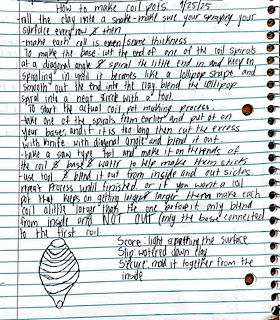 How to make coil pots 9/25/25
roll the clay into a snake - make sure your spraying your
surface every now & then
- make each coil is even/same thickness
To make the base - cut the end of one of the coil spirals
at a diagonal angle & spiral the little end in and keep on
spiraling until it becomes like a lollipop shape and
smooth out the end into the clay. blend the lollipop
spiral into a neat circle with a tool
To start the actual coil pot making process:
- take one of the spirals from earlier and put it on
your base, and if it is too long then cut the excess
with knife with diagonal angle and blend it out
- take a saw type tool and make it on the ends of
the coil & base & water to help make them stick
- use tool & blend it out from inside and out sides
repeat process until finished or if you want a coil
pot that keeps on getting larger & larger then make each
coil a little larger than the one before it only blend
from inside and NOT OUT (only the base connected
to the first coil
Score: light something the surface
Slip: watered down clay
Secure: mold it together from the
inside